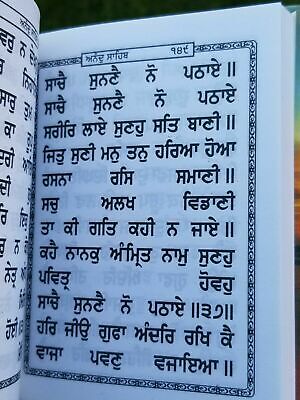 ਅਨੰਦੁ ਸਾਹਿਬ ੧੪੯
ਸਾਚੈ ਸੁਨਣੈ ਨੋ ਪਠਾਏ॥
ਸਾਚੈ ਸੁਨਣੈ ਨੋ ਪਠਾਏ॥
ਸਰੀਰਿ ਲਾਏ ਸੁਣਹੁ ਸਤਿ ਬਾਣੀ॥
ਜਿਤੁ ਸੁਣੀ ਮਨੁ ਤਨੁ ਹਰਿਆ ਹੋਆ
ਰਸਨਾ ਰਸਿ ਸਮਾਣੀ॥
ਸਚੁ ਅਲਖ ਵਿਡਾਣੀ
ਤਾ ਕੀ ਗਤਿ ਕਹੀ ਨ ਜਾਏ॥
ਕਹੈ ਨਾਨਕੁ ਅੰਮ੍ਰਿਤ ਨਾਮੁ ਸੁਣਹੁ
ਪਵਿਤ੍ਰ ਹੋਵਹੁ
ਸਾਚੈ ਸੁਨਣੈ ਨੋ ਪਠਾਏ॥੩੭॥
ਹਰਿ ਜੀਉ ਗੁਫਾ ਅੰਦਰਿ ਰਖਿ ਕੈ
ਵਾਜਾ ਪਵਣੁ ਵਜਾਇਆ॥